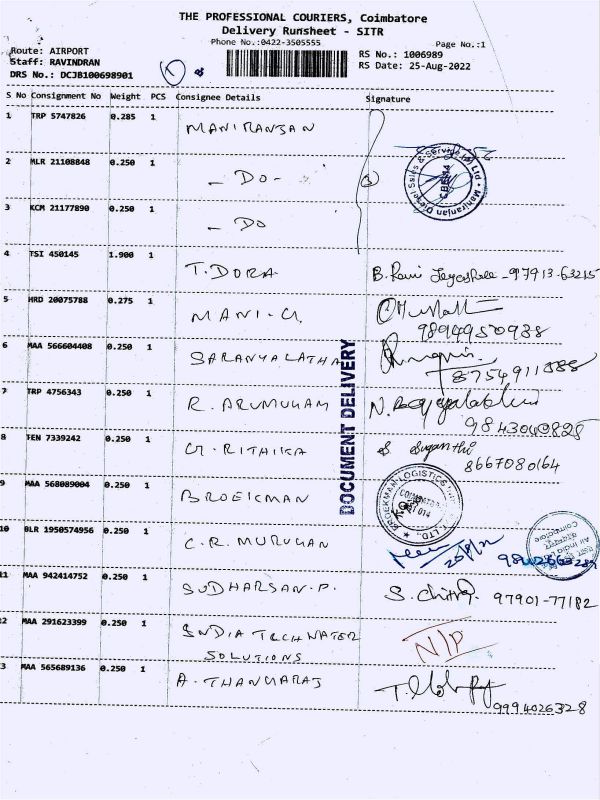 THE PROFESSIONAL COURIERS, Coimbatore
Delivery Runsheet - SITR
Phone No.:0422-3505555
Page No.:1
Route: AIRPORT
Staff: RAVINDRAN
DRS No.: DCJB100698901
RS No.: 1006989
RS Date: 25-Aug-2022
S No Consignment No Weight PCS Consignee Details Signature
1 TRP 5747826 0.285 1 MANIRANJAN
2 MLR 21108848 0.250 1 - DO -
3 KCM 21177890 0.250 1 - DO
4 TSI 450145 1.900 1 T. DORA B. Rani Jeyashree - 97913-63215
5 HRD 20075788 0.275 1 MANI - G. 9894950938
6 MAA 566604408 0.250 1 SARANYALATHA 8754911888
7 TRP 4756343 0.250 1 R. ARUMUGAM N. 9843040825
8 TEN 7339242 0.250 1 G. RITHIKA S. Suganthi 8667080164
DOCUMENT DELIVERY
9 MAA 568089004 0.250 1 BROEKMAN
BROEKMAN LOGISTICS
10 BLR 1950574956 0.250 1 C. R. MURUGAN 25/8/22
11 MAA 942414752 0.250 1 SUDHARSAN. P. S. Chitra. 97901-77182
2 MAA 291623399 0.250 1 INDIA TECH WATER
SOLUTIONS N/P
3 MAA 565689136 0.250 1 A. THANGARAJ 9994026328